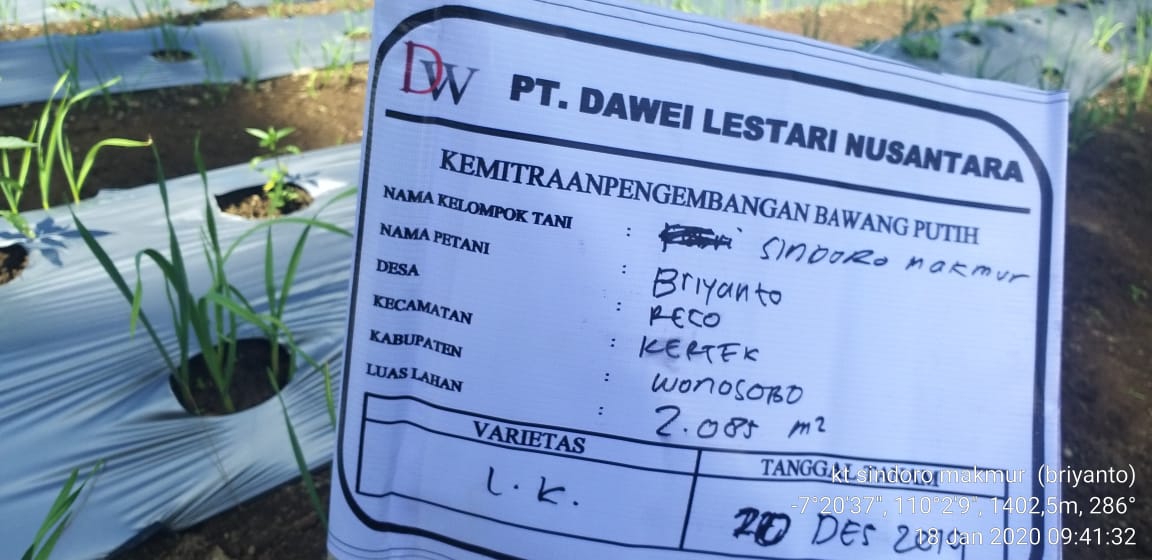 DW
PT. DAWEI LESTARI NUSANTARA
KEMITRAANPENGEMBANGAN BAWANG PUTIH
NAMA KELOMPOK TANI : SINDORO MAKMUR
NAMA PETANI : Briyanto
DESA : RECO
KECAMATAN : KERTEK
KABUPATEN : WONOSOBO
LUAS LAHAN : 2.085 m²
VARIETAS TANGGAL
L.K. 20 DES
kt sindoro makmur (briyanto)
-7°20'37", 110°2'9", 1402,5m, 286°
18 Jan 2020 09:41:32